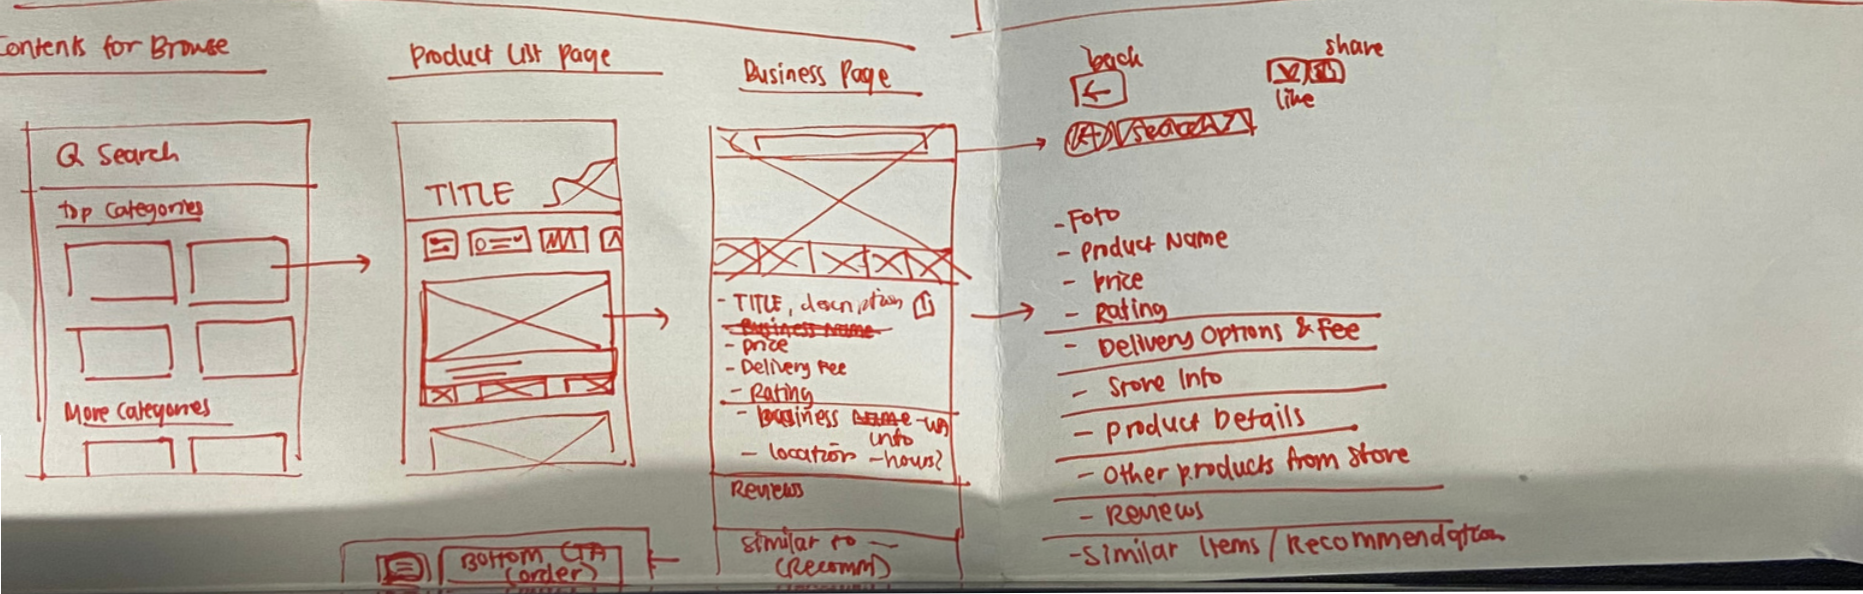 Contents for Browse
Q Search
Top Categories
More Categories
Product List Page
TITLE
Business Page
- TITLE, description
- Business Name
- price
- Delivery Fee
- Rating
- business name
info
- location - hours?
Reviews
Similar to —
(Recomm)
Bottom CTA
(order)
back
share
like
search
- Foto
- Product Name
- price
- Rating
- Delivery Options & Fee
- Store Info
- Product Details
- Other products from store
- Reviews
- Similar Items / Recommendation